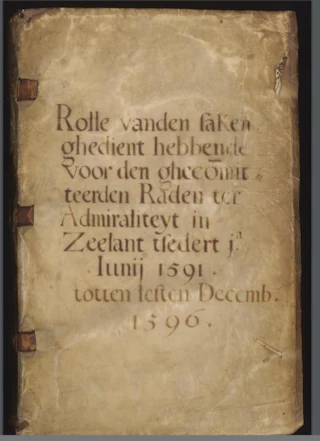 Rolle vanden saken
ghedient hebbende
voor den ghecom̄it
teerden Raden ter
Admiraliteyt in
Zeelant tsedert jᵃ
Iunij 1591.
totten lesten Decemb.
1596.